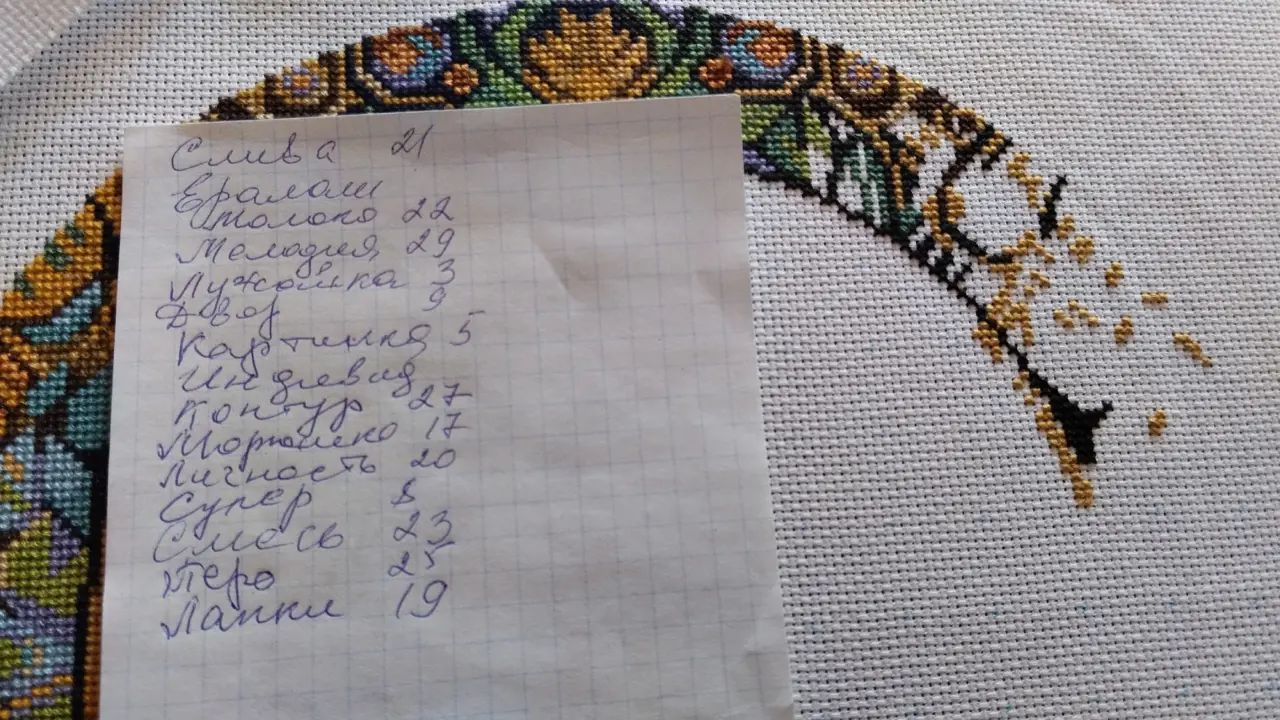 Слива 21
Ералаш
Молоко 22
Мелодия 29
Лужайка 3
Двор 9
Картинка 5
Индивид
Контур 27
Морошко 17
Личность 20
Супер 8
Смесь 23
Перо 25
Лапки 19